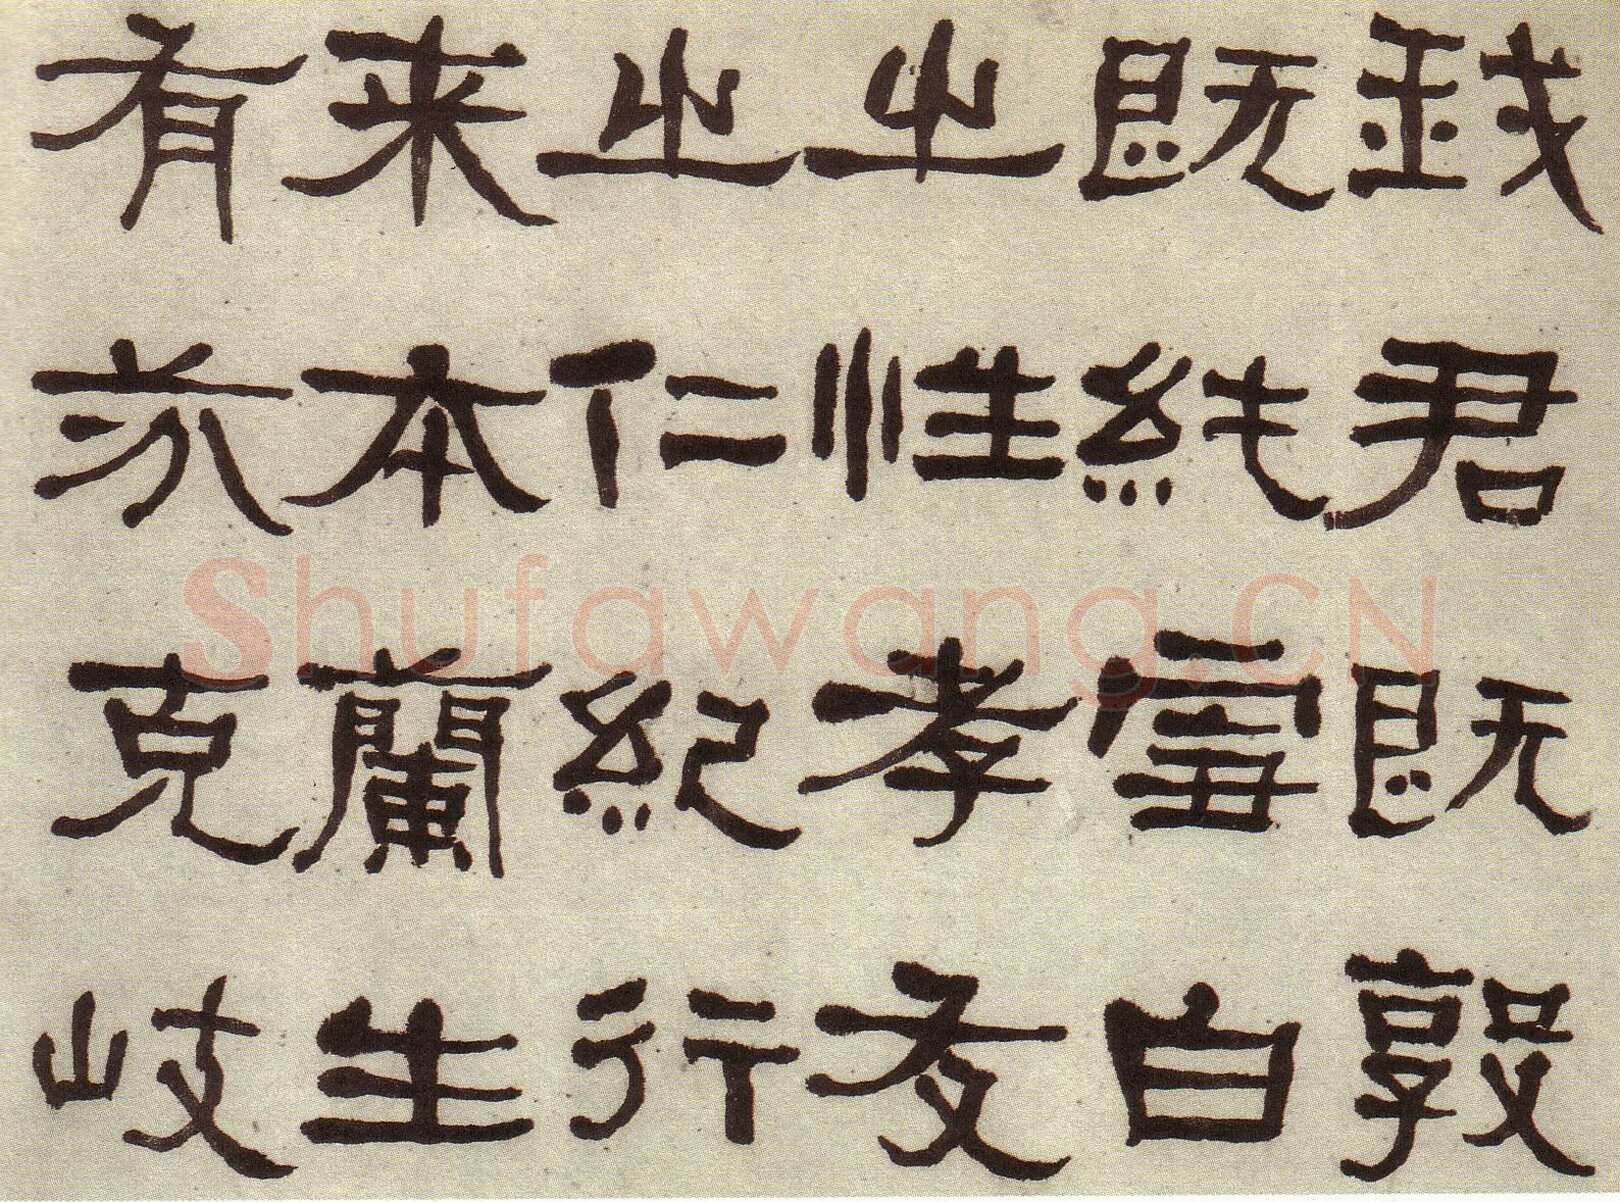 我君既敦
既純雪白
之性孝友
之仁紀行
来本蘭生
有芬克岐
Shufawang.CN